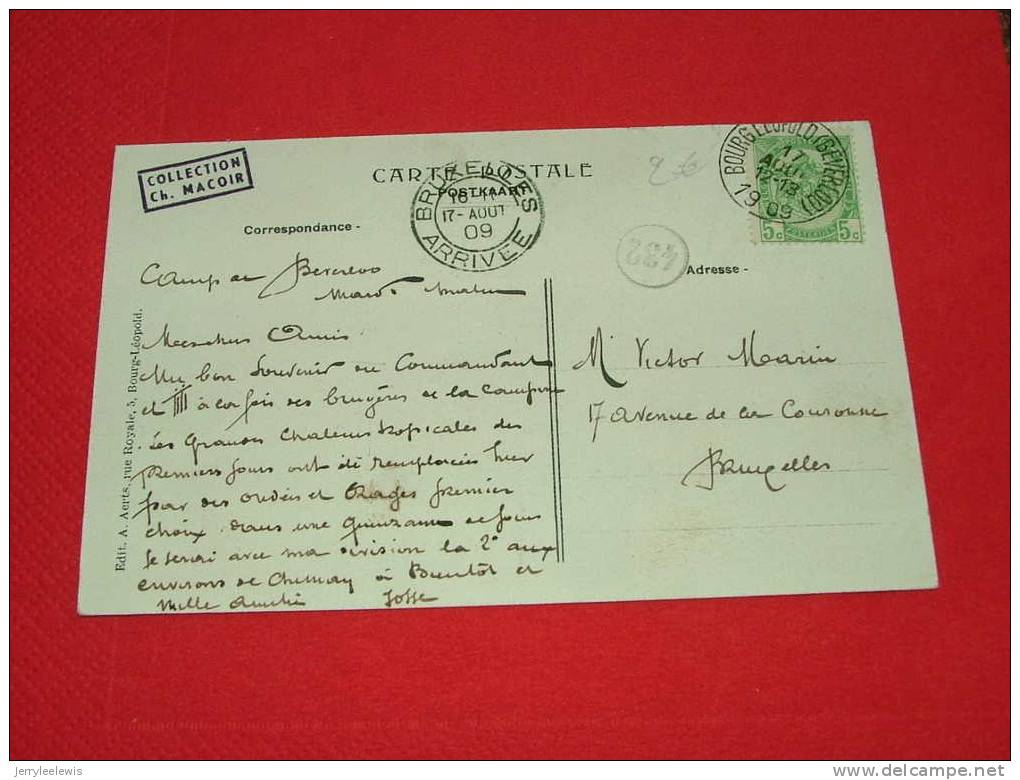 COLLECTION
Ch. MACOIR
CARTE POSTALE
POSTKAART
BRUXELLES
17-AOUT
09
ARRIVÉE
BOURG-LÉOPOLD (BEVERLOO)
17
AOUT
12-13
1909
5c 5c
432
2 €
Correspondance -
Adresse -
Camp de Beverloo
Mardi matin
Mes chers Amis
Un bon Souvenir du Commandant
et à la fois des bruyères de la Campine
Les Grandes Chaleurs tropicales des
premiers jours ont été remplacées hier
par des ondées et Orages premier
choix. dans une quinzaine de jours
je serai avec ma division la 2e aux
environs de Chimay à Bientôt et
Mille Amitiés Josse
M Victor Marin
17 avenue de la Couronne
Bruxelles
Edit. A. Aerts, rue Royale, 5, Bourg-Léopold.
jerryleelewis
http://www.delcampe.net